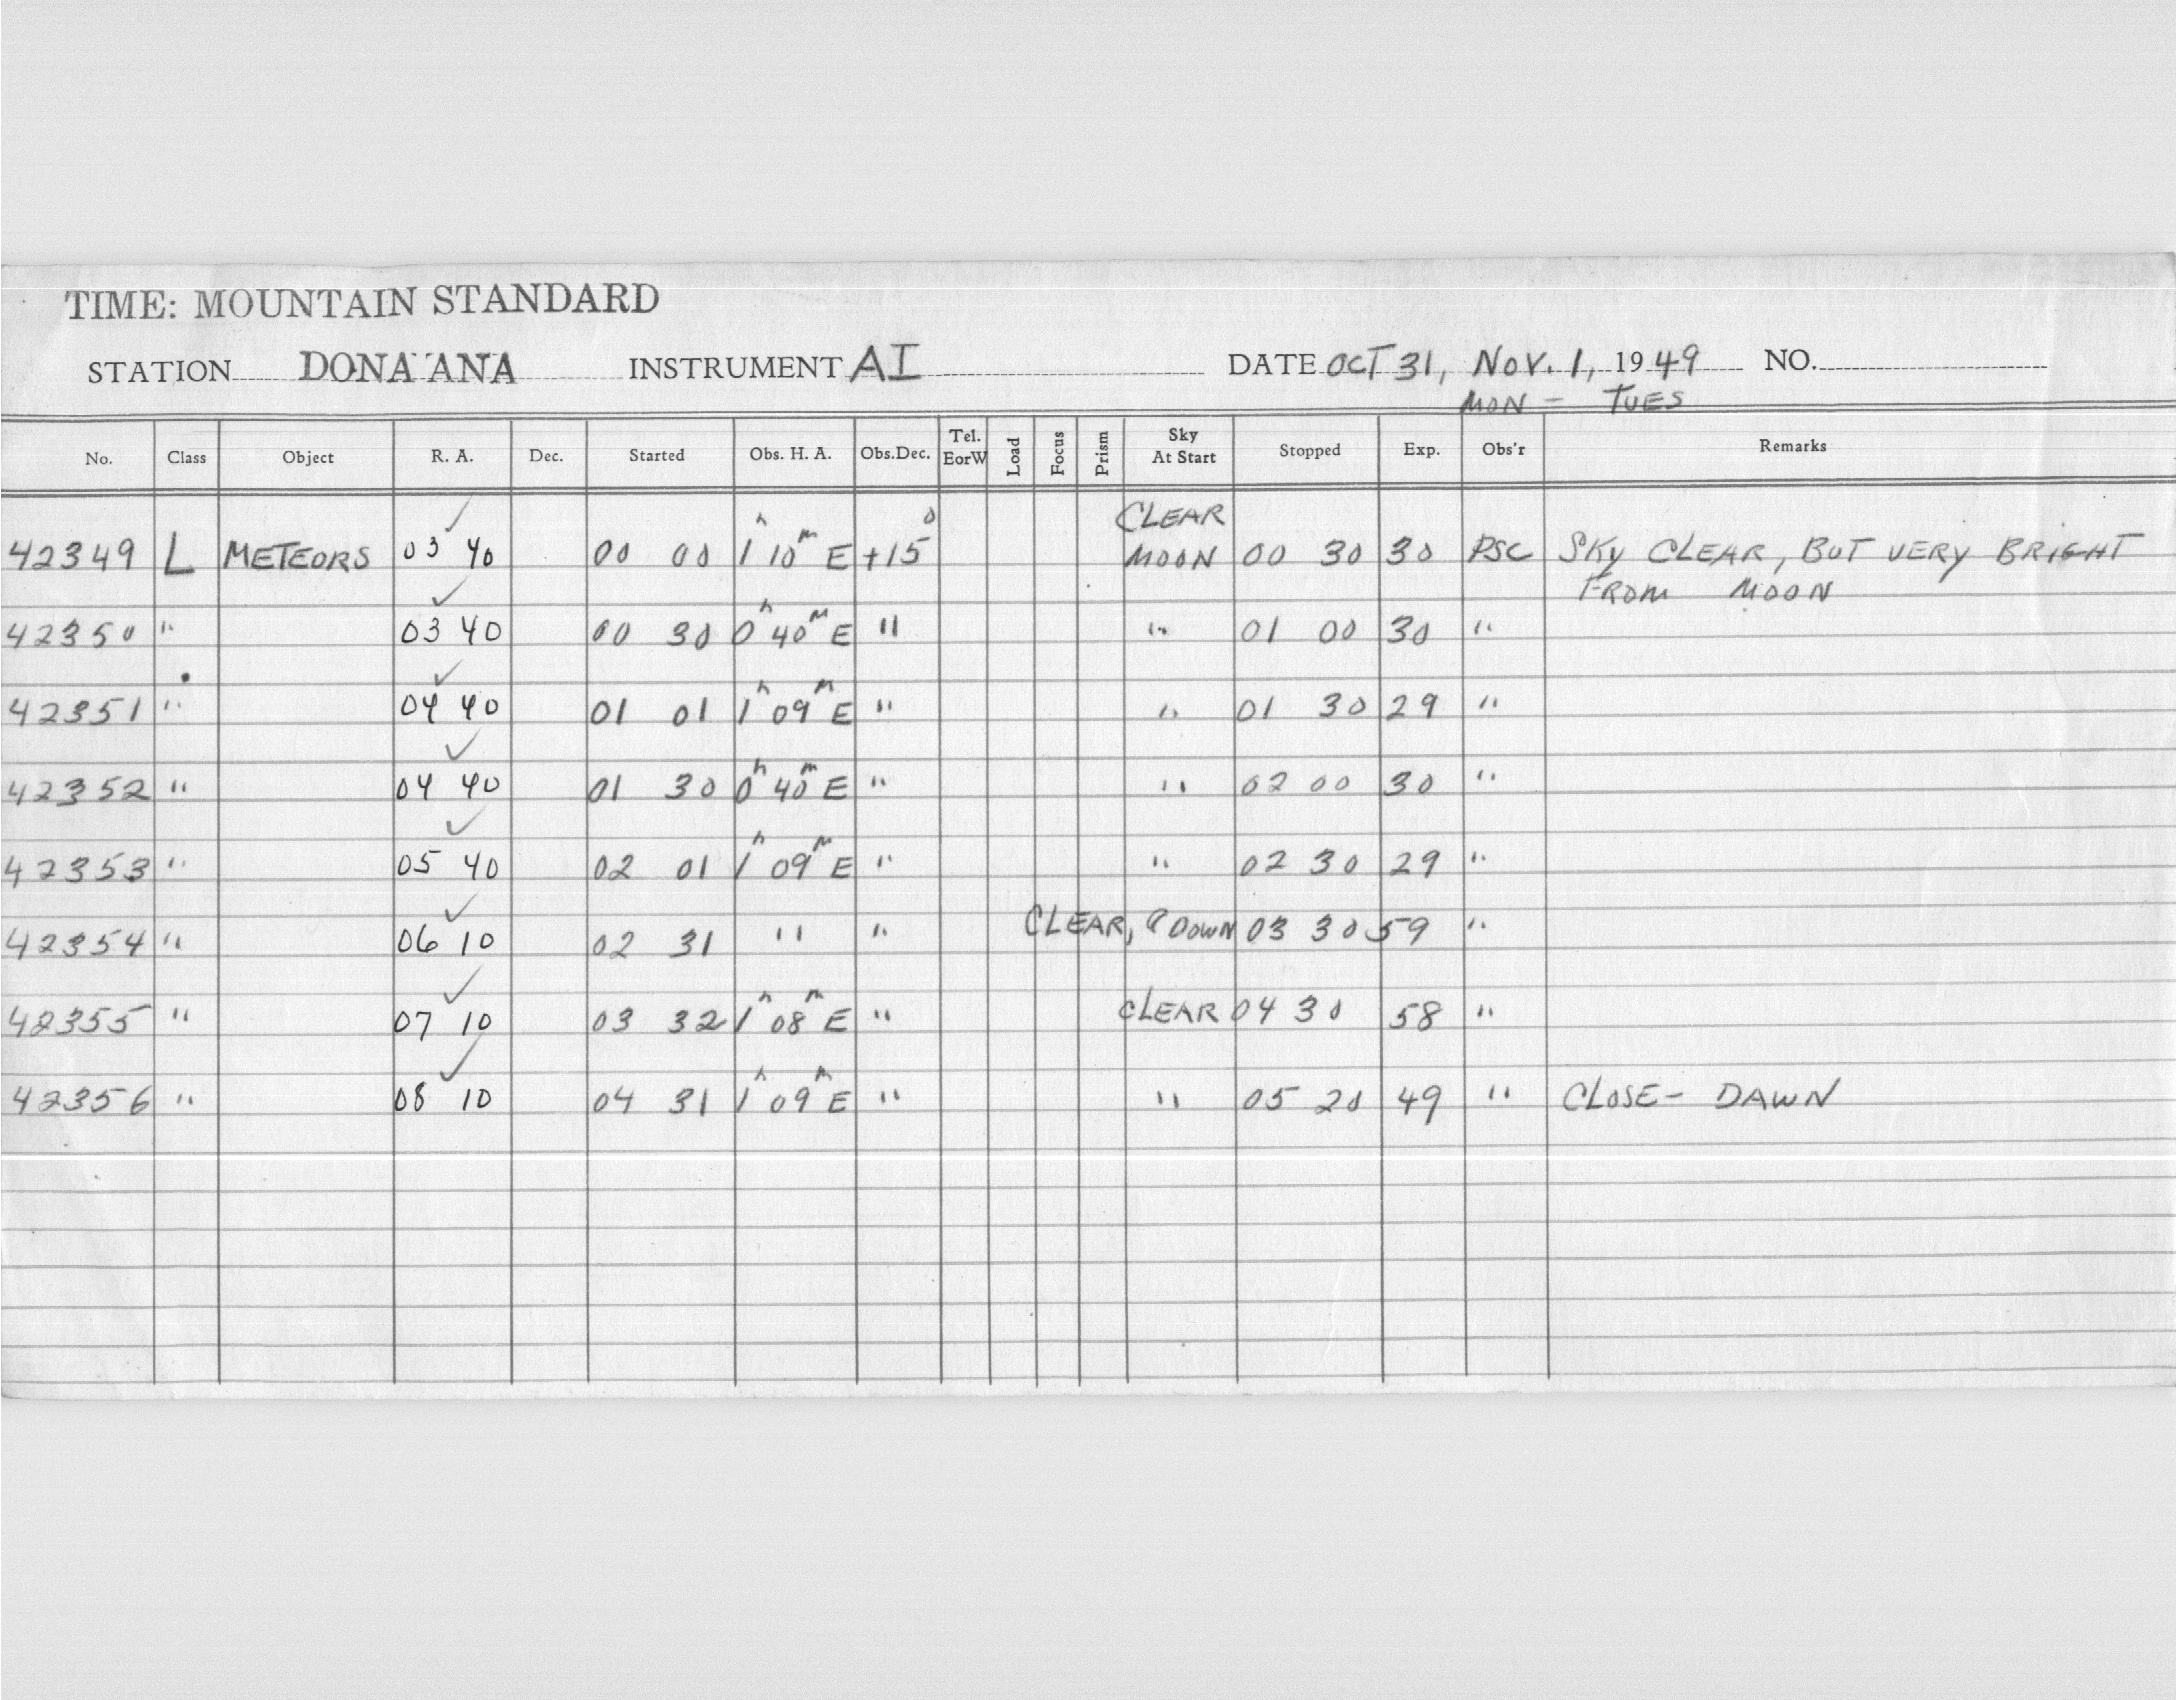 TIME: MOUNTAIN STANDARD
STATION DONA ANA INSTRUMENT AI DATE OCT 31, NOV. 1, 1949 NO.
MON - TUES
No. Class Object R. A. Dec. Started Obs. H. A. Obs.Dec. Tel. EorW Load Focus Prism Sky At Start Stopped Exp. Obs'r Remarks
42349 L METEORS 03 40 ✓ 00 00 1h 10m E +15° CLEAR MOON 00 30 30 PSC SKY CLEAR, BUT VERY BRIGHT
FROM MOON
42350 " 03 40 ✓ 00 30 0h 40m E " " 01 00 30 "
42351 " 04 40 ✓ 01 01 1h 09m E " " 01 30 29 "
42352 " 04 40 ✓ 01 30 0h 40m E " " 02 00 30 "
42353 " 05 40 ✓ 02 01 1h 09m E " " 02 30 29 "
42354 " 06 10 ✓ 02 31 " " CLEAR, DOWN 03 30 59 "
42355 " 07 10 ✓ 03 32 1h 08m E " CLEAR 04 30 58 "
42356 " 08 10 ✓ 04 31 1h 09m E " " 05 20 49 " CLOSE - DAWN